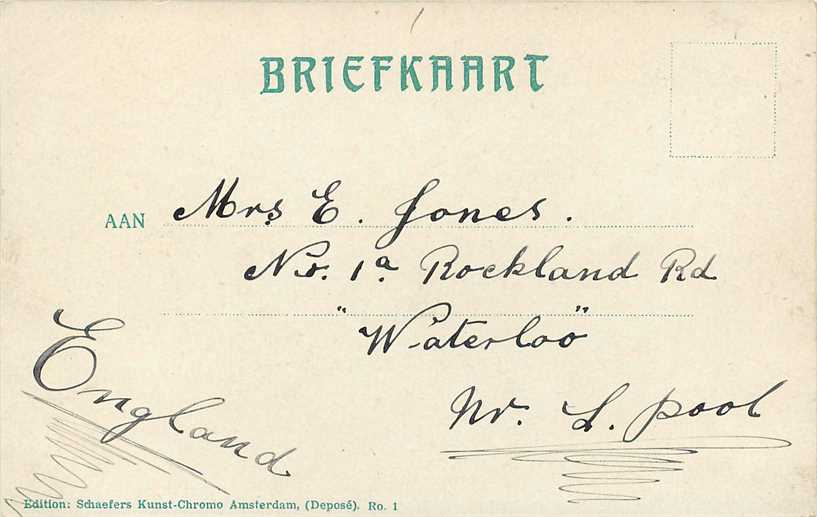 BRIEFKAART
AAN Mrs E. Jones.
No. 1a Rockland Rd
"Waterloo"
Nr. L. pool
England
Edition: Schaefers Kunst-Chromo Amsterdam, (Deposé). Ro. 1